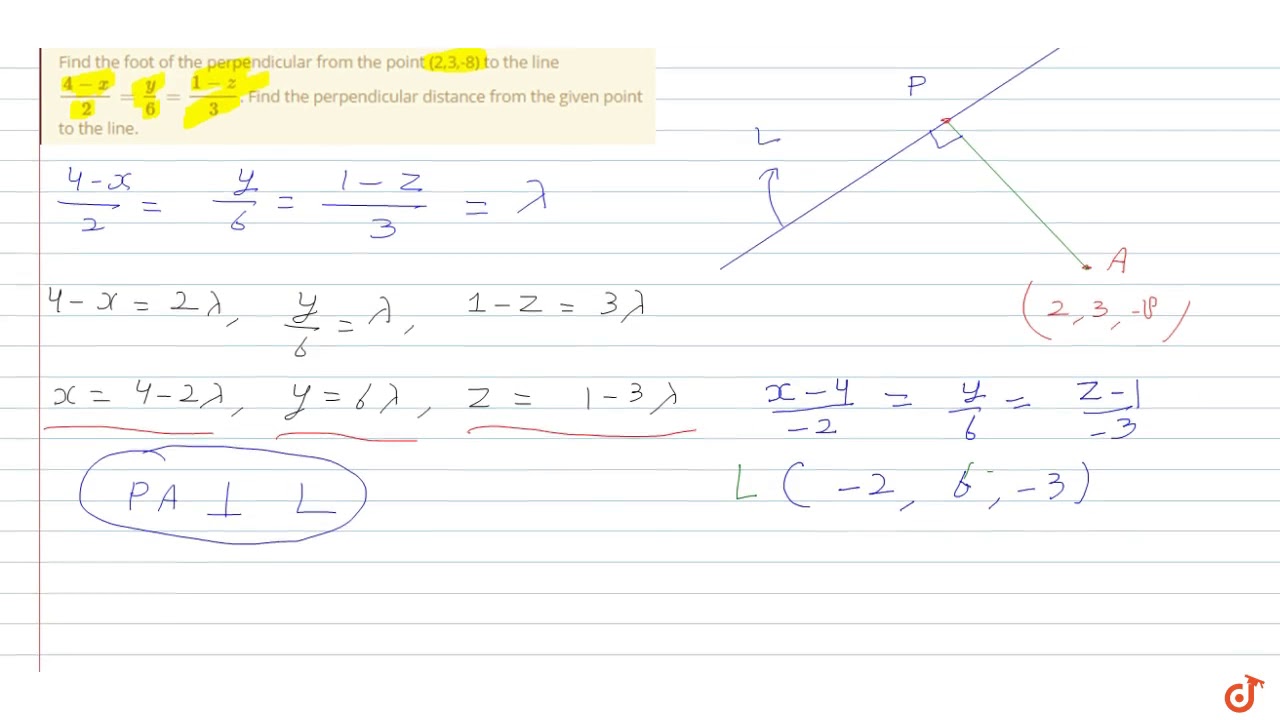 Find the foot of the perpendicular from the point (2,3,-8) to the line
4 − x / 2 = y / 6 = 1 − z / 3 . Find the perpendicular distance from the given point
to the line.
P
L
4 − x / 2 = y / 6 = 1 − z / 3 = λ
A
4 − x = 2λ, y / 6 = λ, 1 − z = 3λ
(2, 3, -8)
x = 4 − 2λ, y = 6λ, z = 1 − 3λ
x − 4 / −2 = y / 6 = z − 1 / −3
PA ⊥ L
L (−2, 6, −3)